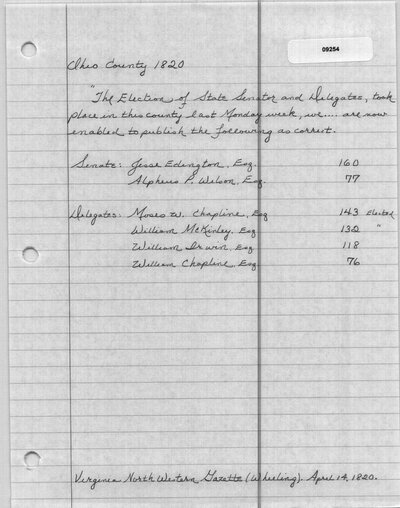 09254
Ohio County 1820
"The Election of State Senator and Delegates, took
place in this county last Monday week, we.... are now
enabled to publish the following as correct.
Senate: Jesse Edington, Esq. 160
Alpheus P. Wilson, Esq. 77
Delegates: Moses W. Chapline, Esq 143 Elected
William McKinley, Esq 132 "
William Irwin, Esq 118
William Chapline, Esq 76
Virginia North Western Gazette (Wheeling). April 14, 1820.